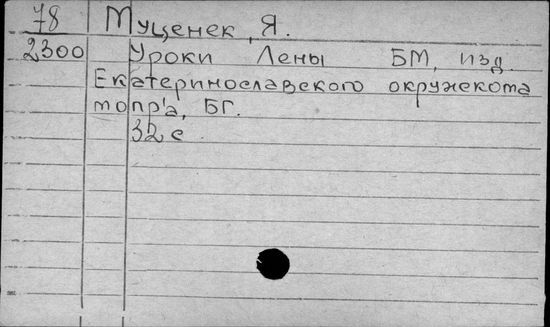 78 Муценек, Я.
2300 Уроки Лены БМ, изд.
Екатеринославского окружкома
мопр'а, БГ.
32 с